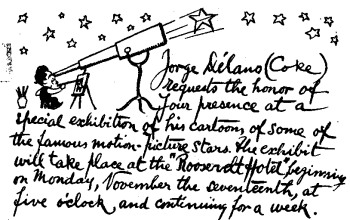 Jorge Délano (Coke)
requests the honor of
your presence at a
special exhibition of his cartoons of some of
the famous motion-picture stars. The exhibit
will take place at the "Roosevelt Hotel" beginning
on Monday, November the seventeenth, at
five o'clock and continuing for a week.